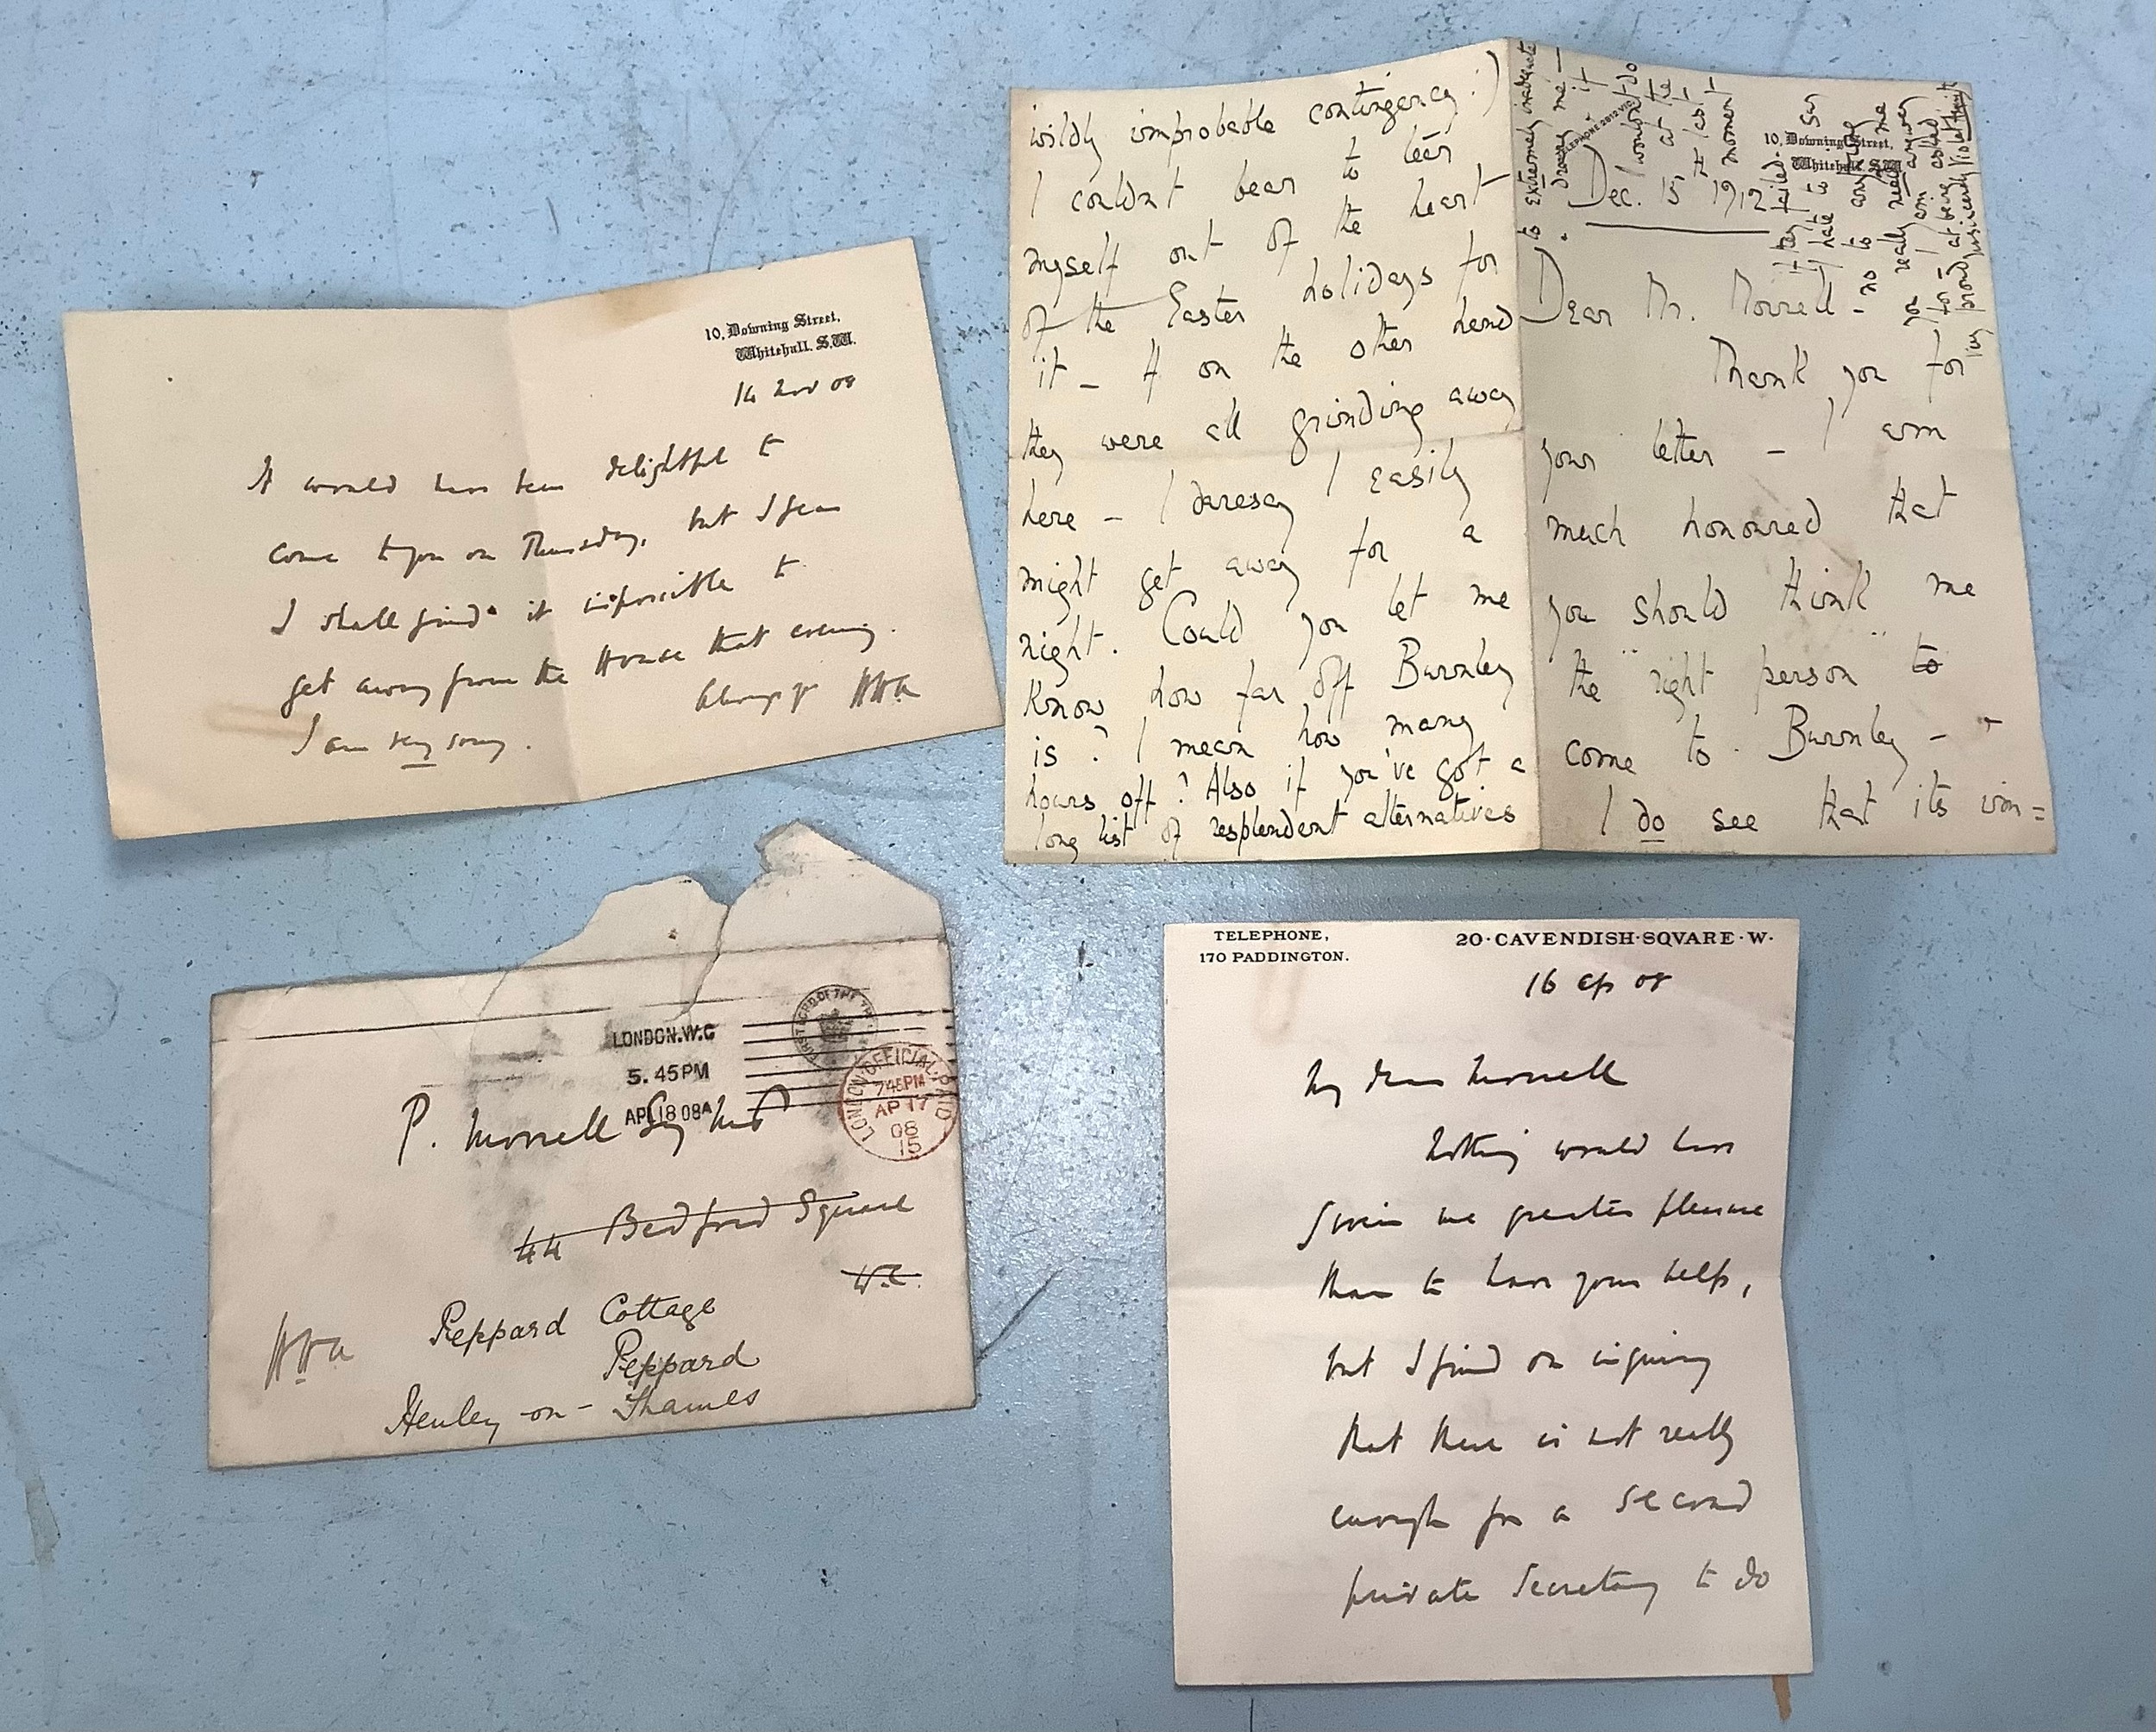 10, Downing Street,
Whitehall. S.W.
14 Nov 08
It would have been delightful to
come to you on Thursday, but I fear
I shall find it impossible to
get away from the House that evening.
I am very sorry.
Always yr HHA
wildly improbable contingency!)
I couldn't bear to tear
myself out of the heart
of the Easter holidays for
it – If on the other hand
they were all grinding away
here – I daresay I easily
might get away for a
night. Could you let me
know how far off Burnley
is? I mean how many
hours off? Also if you've got a
long list of resplendent alternatives
10, Downing Street,
Whitehall. S.W.
Dec. 15 1912
Dear Mr. Morrell –
Thank you for
your letter – I am
much honoured that
you should think me
the "right" person to
come to Burnley –
I do see that its im=
to extremely inadequate
me –
it
wouldn't do
at the
last
moment
if they failed.
I hate to say
no to anything
you really need me
for – I am
proud at being asked
LONDON.W.C
5. 45PM
APL 18 08A
LONDON OFFICIAL PAID
745PM
AP 17
08
15
P. Morrell Esq MP
44 Bedford Square
W.C.
Peppard Cottage
Peppard
Henley-on-Thames
HHA
TELEPHONE,
170 PADDINGTON.
20·CAVENDISH·SQVARE·W.
16 Ap 08
My dear Morrell
Nothing would have
given me greater pleasure
than to have your help,
but I find on inquiry
that there is not really
enough for a second
private Secretary to do